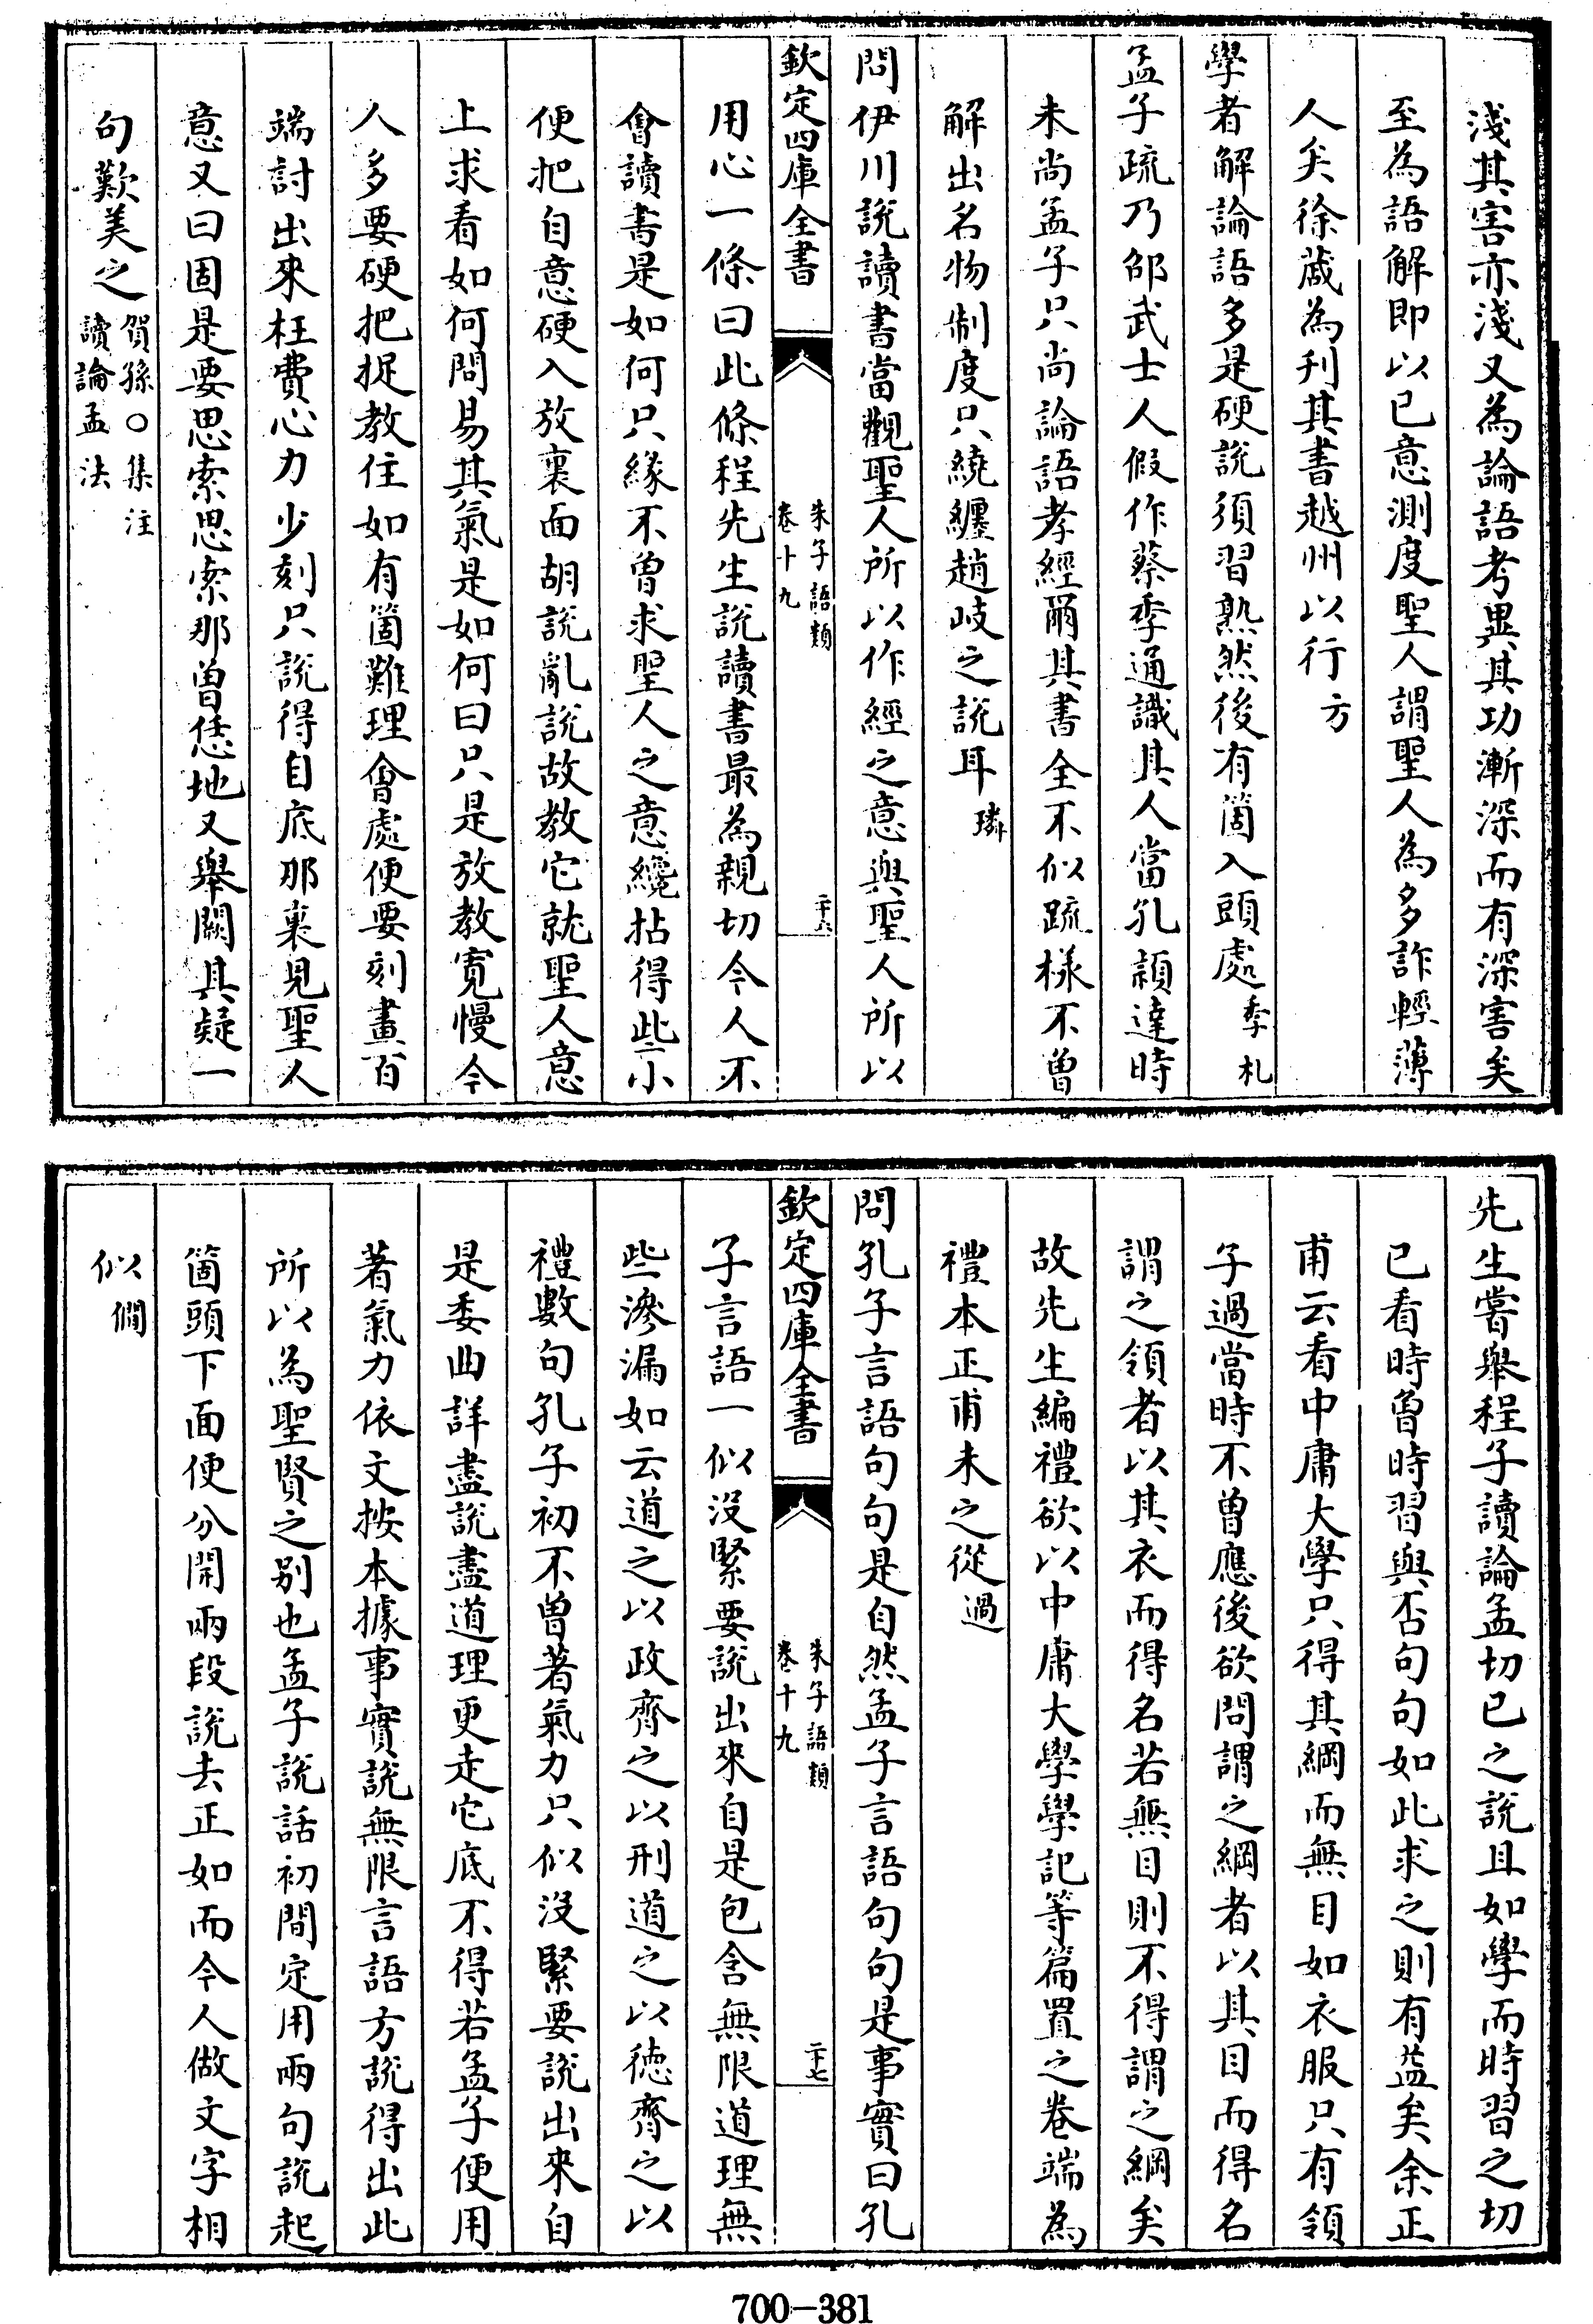 淺其害亦淺又為論語考異其功漸深而有深害矣
至為語解即以己意測度聖人謂聖人為多詐輕薄
人矣徐蕆為刋其書越州以行方
學者解論語多是硬說須習熟然後有箇入頭處季札
孟子疏乃邵武士人假作蔡季通識其人當孔穎達時
未尚孟子只尚論語孝經爾其書全不似疏様不曽
解出名物制度只繞纒趙岐之說耳璘
問伊川說讀書當觀聖人所以作經之意與聖人所以
欽定四庫全書
朱子語類
卷十九
二十六
用心一條曰此條程先生說讀書最為親切今人不
會讀書是如何只緣不曽求聖人之意纔拈得些小
便把自意硬入放裏面胡說亂說故教它就聖人意
上求看如何問易其氣是如何曰只是放教寛慢今
人多要硬把捉教住如有箇難理會處便要刻畫百
端討出來枉費心力少刻只說得自底那裏見聖人
意又曰固是要思索思索那曽恁地又舉闕其疑一
句歎美之賀孫○集注
讀論孟法
先生嘗舉程子讀論孟切己之說且如學而時習之切
已看時曽時習與否句句如此求之則有益矣余正
甫云看中庸大學只得其綱而無目如衣服只有領
子過當時不曽應後欲問謂之綱者以其目而得名
謂之領者以其衣而得名若無目則不得謂之綱矣
故先生編禮欲以中庸大學學記等篇置之卷端為
禮本正甫未之從過
問孔子言語句句是自然孟子言語句句是事實曰孔
欽定四庫全書
朱子語類
卷十九
二十七
子言語一似沒緊要說出來自是包含無限道理無
些滲漏如云道之以政齊之以刑道之以徳齊之以
禮數句孔子初不曽著氣力只似沒緊要說出來自
是委曲詳盡說盡道理更走它底不得若孟子便用
著氣力依文按本據事實說無限言語方說得出此
所以為聖賢之别也孟子說話初間定用兩句說起
箇頭下面便分開兩段說去正如而今人做文字相
似僩
700-381